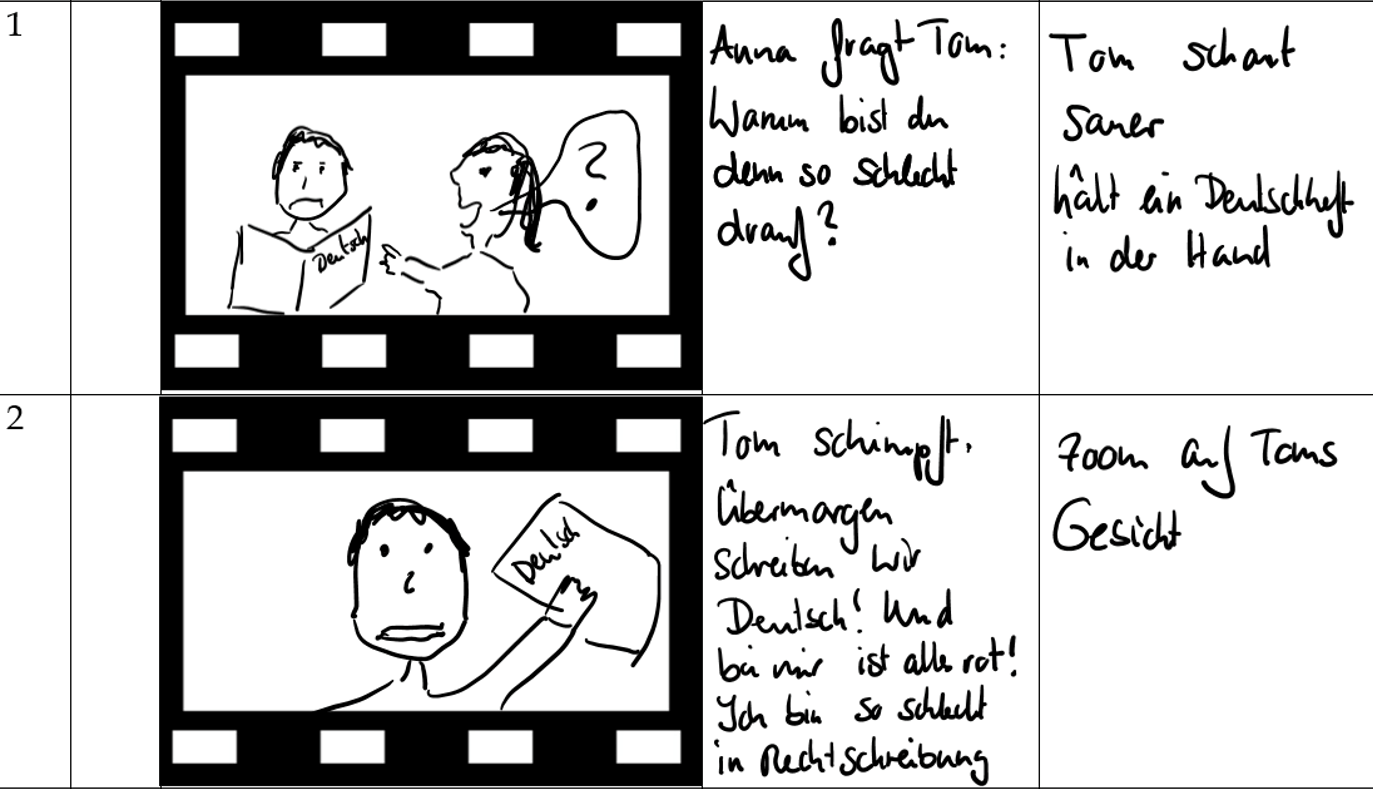 1
Deutsch
?
Anna fragt Tom:
Warum bist du
denn so schlecht
drauf?
Tom schaut
sauer
hält ein Deutschheft
in der Hand
2
Deutsch
Tom schimpft.
Übermorgen
schreiben wir
Deutsch! Und
bei mir ist alles rot!
Ich bin so schlecht
in Rechtschreibung
Zoom auf Toms
Gesicht